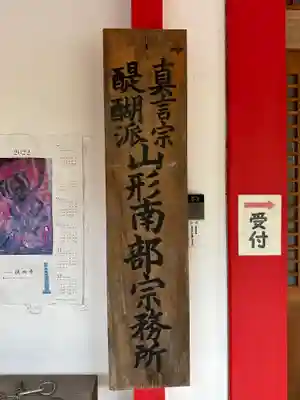 真言宗
醍醐派
山形南部宗務所
受付
2022